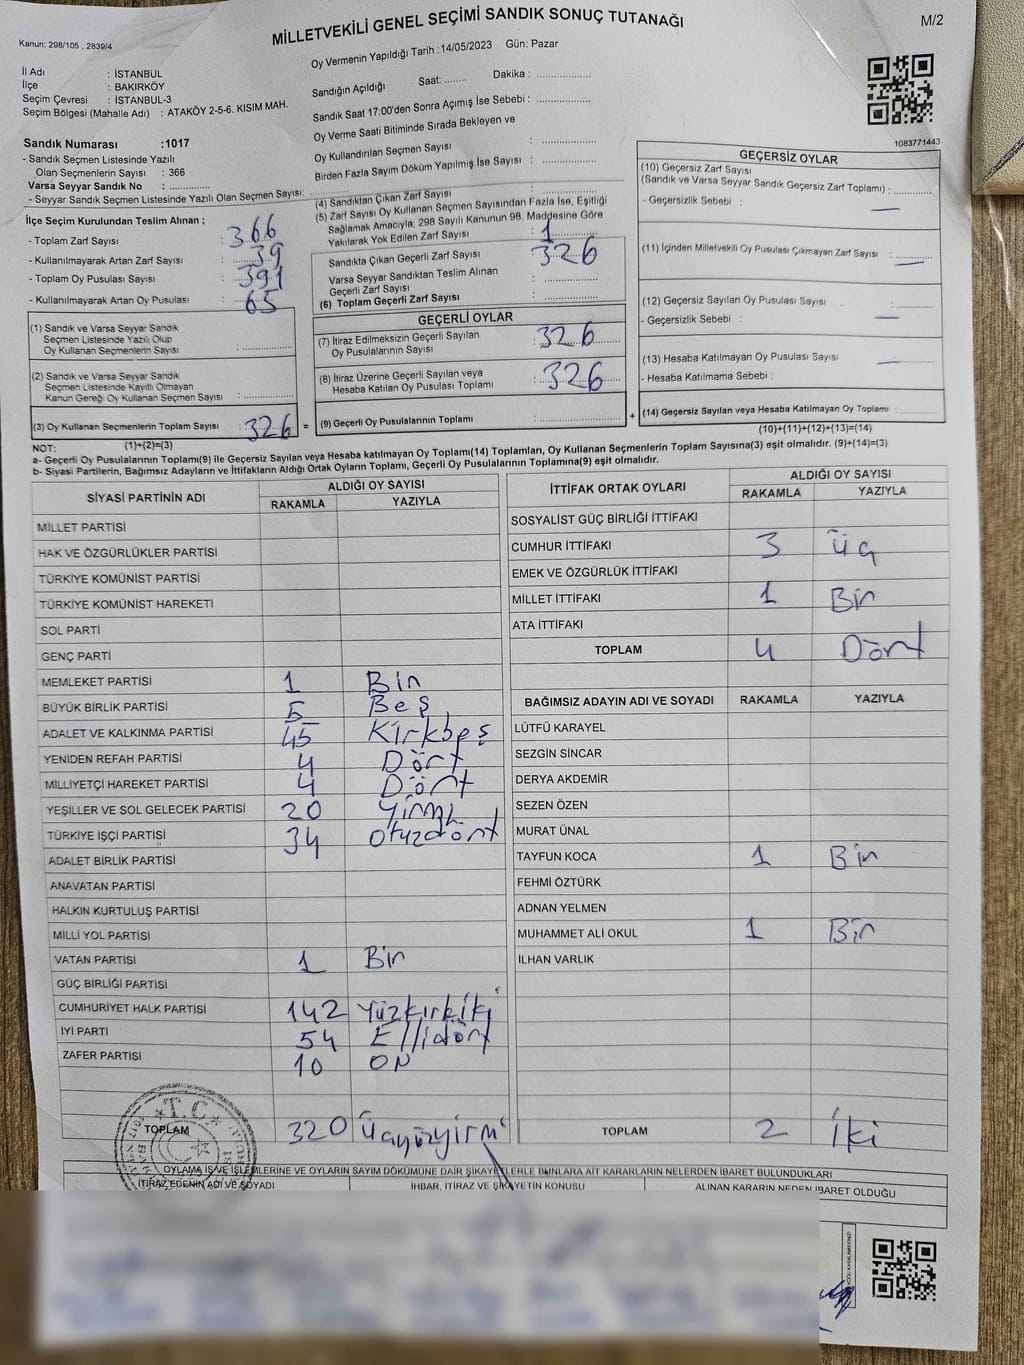 MİLLETVEKİLİ GENEL SEÇİMİ SANDIK SONUÇ TUTANAĞI
M/2
Kanun; 298/105 , 2839/4
Oy Vermenin Yapıldığı Tarih : 14/05/2023 Gün: Pazar
İl Adı : İSTANBUL
İlçe : BAKIRKÖY
Seçim Çevresi : İSTANBUL-3
Seçim Bölgesi (Mahalle Adı) : ATAKÖY 2-5-6. KISIM MAH.
Sandık Numarası :1017
- Sandık Seçmen Listesinde Yazılı
Olan Seçmenlerin Sayısı : 366
Varsa Seyyar Sandık No : ..............
- Seyyar Sandık Seçmen Listesinde Yazılı Olan Seçmen Sayısı: ..............
Sandığın Açıldığı Saat: ........ Dakika : ................
Sandık Saat 17:00'den Sonra Açımış İse Sebebi : ................
Oy Verme Saati Bitiminde Sırada Bekleyen ve
Oy Kullandırılan Seçmen Sayısı : ................
Birden Fazla Sayım Döküm Yapılmış İse Sayısı : ................
1083771443
İlçe Seçim Kurulundan Teslim Alınan ;
- Toplam Zarf Sayısı : 366
- Kullanılmayarak Artan Zarf Sayısı : 39
- Toplam Oy Pusulası Sayısı : 391
- Kullanılmayarak Artan Oy Pusulası : 65
(1) Sandık ve Varsa Seyyar Sandık
Seçmen Listesinde Yazılı Olup
Oy Kullanan Seçmenlerin Sayısı : ..............
(2) Sandık ve Varsa Seyyar Sandık
Seçmen Listesinde Kayıtlı Olmayan
Kanun Gereği Oy Kullanan Seçmen Sayısı : ..............
(3) Oy Kullanan Seçmenlerin Toplam Sayısı : 326 =
(1)+(2)=(3)
(4) Sandıktan Çıkan Zarf Sayısı : ..............
(5) Zarf Sayısı Oy Kullanan Seçmen Sayısından Fazla İse, Eşitliği
Sağlamak Amacıyla, 298 Sayılı Kanunun 98. Maddesine Göre
Yakılarak Yok Edilen Zarf Sayısı : 1
Sandıkta Çıkan Geçerli Zarf Sayısı : 326
Varsa Seyyar Sandıktan Teslim Alınan
Geçerli Zarf Sayısı : ..............
(6) Toplam Geçerli Zarf Sayısı : ..............
GEÇERLİ OYLAR
(7) İtiraz Edilmeksizin Geçerli Sayılan
Oy Pusulalarının Sayısı : 326
(8) İtiraz Üzerine Geçerli Sayılan veya
Hesaba Katılan Oy Pusulası Toplamı : 326
(9) Geçerli Oy Pusulalarının Toplamı : .............. +
GEÇERSİZ OYLAR
(10) Geçersiz Zarf Sayısı
(Sandık ve Varsa Seyyar Sandık Geçersiz Zarf Toplamı) : ..............
- Geçersizlik Sebebi : —
(11) İçinden Milletvekili Oy Pusulası Çıkmayan Zarf Sayısı : —
(12) Geçersiz Sayılan Oy Pusulası Sayısı : ..............
- Geçersizlik Sebebi : —
(13) Hesaba Katılmayan Oy Pusulası Sayısı : —
- Hesaba Katılmama Sebebi :
(14) Geçersiz Sayılan veya Hesaba Katılmayan Oy Toplamı : ..............
(10)+(11)+(12)+(13)=(14)
NOT:
a- Geçerli Oy Pusulalarının Toplamı(9) ile Geçersiz Sayılan veya Hesaba katılmayan Oy Toplamı(14) Toplamları, Oy Kullanan Seçmenlerin Toplam Sayısına(3) eşit olmalıdır. (9)+(14)=(3)
b- Siyasi Partilerin, Bağımsız Adayların ve İttifakların Aldığı Ortak Oyların Toplamı, Geçerli Oy Pusulalarının Toplamına(9) eşit olmalıdır.
SİYASİ PARTİNİN ADI ALDIĞI OY SAYISI
RAKAMLA YAZIYLA
MİLLET PARTİSİ
HAK VE ÖZGÜRLÜKLER PARTİSİ
TÜRKİYE KOMÜNİST PARTİSİ
TÜRKİYE KOMÜNİST HAREKETİ
SOL PARTİ
GENÇ PARTİ
MEMLEKET PARTİSİ 1 Bir
BÜYÜK BİRLİK PARTİSİ 5 Beş
ADALET VE KALKINMA PARTİSİ 45 Kırkbeş
YENİDEN REFAH PARTİSİ 4 Dört
MİLLİYETÇİ HAREKET PARTİSİ 4 Dört
YEŞİLLER VE SOL GELECEK PARTİSİ 20 Yirmi
TÜRKİYE İŞÇİ PARTİSİ 34 Otuzdört
ADALET BİRLİK PARTİSİ
ANAVATAN PARTİSİ
HALKIN KURTULUŞ PARTİSİ
MİLLİ YOL PARTİSİ
VATAN PARTİSİ 1 Bir
GÜÇ BİRLİĞİ PARTİSİ
CUMHURİYET HALK PARTİSİ 142 Yüzkırkiki
İYİ PARTİ 54 Ellidört
ZAFER PARTİSİ 10 ON
TOPLAM 320 Üçyüzyirmi
İTTİFAK ORTAK OYLARI ALDIĞI OY SAYISI
RAKAMLA YAZIYLA
SOSYALİST GÜÇ BİRLİĞİ İTTİFAKI
CUMHUR İTTİFAKI 3 Üç
EMEK VE ÖZGÜRLÜK İTTİFAKI
MİLLET İTTİFAKI 1 Bir
ATA İTTİFAKI
TOPLAM 4 Dört
BAĞIMSIZ ADAYIN ADI VE SOYADI RAKAMLA YAZIYLA
LÜTFÜ KARAYEL
SEZGİN SİNCAR
DERYA AKDEMİR
SEZEN ÖZEN
MURAT ÜNAL
TAYFUN KOCA 1 Bir
FEHMİ ÖZTÜRK
ADNAN YELMEN
MUHAMMET ALİ OKUL 1 Bir
İLHAN VARLIK
TOPLAM 2 İki
T.C
OYLAMA İŞ VE İŞLEMLERİNE VE OYLARIN SAYIM DÖKÜMÜNE DAİR ŞİKAYETLERLE BUNLARA AİT KARARLARIN NELERDEN İBARET BULUNDUKLARI
İTİRAZ EDENİN ADI VE SOYADI İHBAR, İTİRAZ VE ŞİKAYETİN KONUSU ALINAN KARARIN NEDEN İBARET OLDUĞU